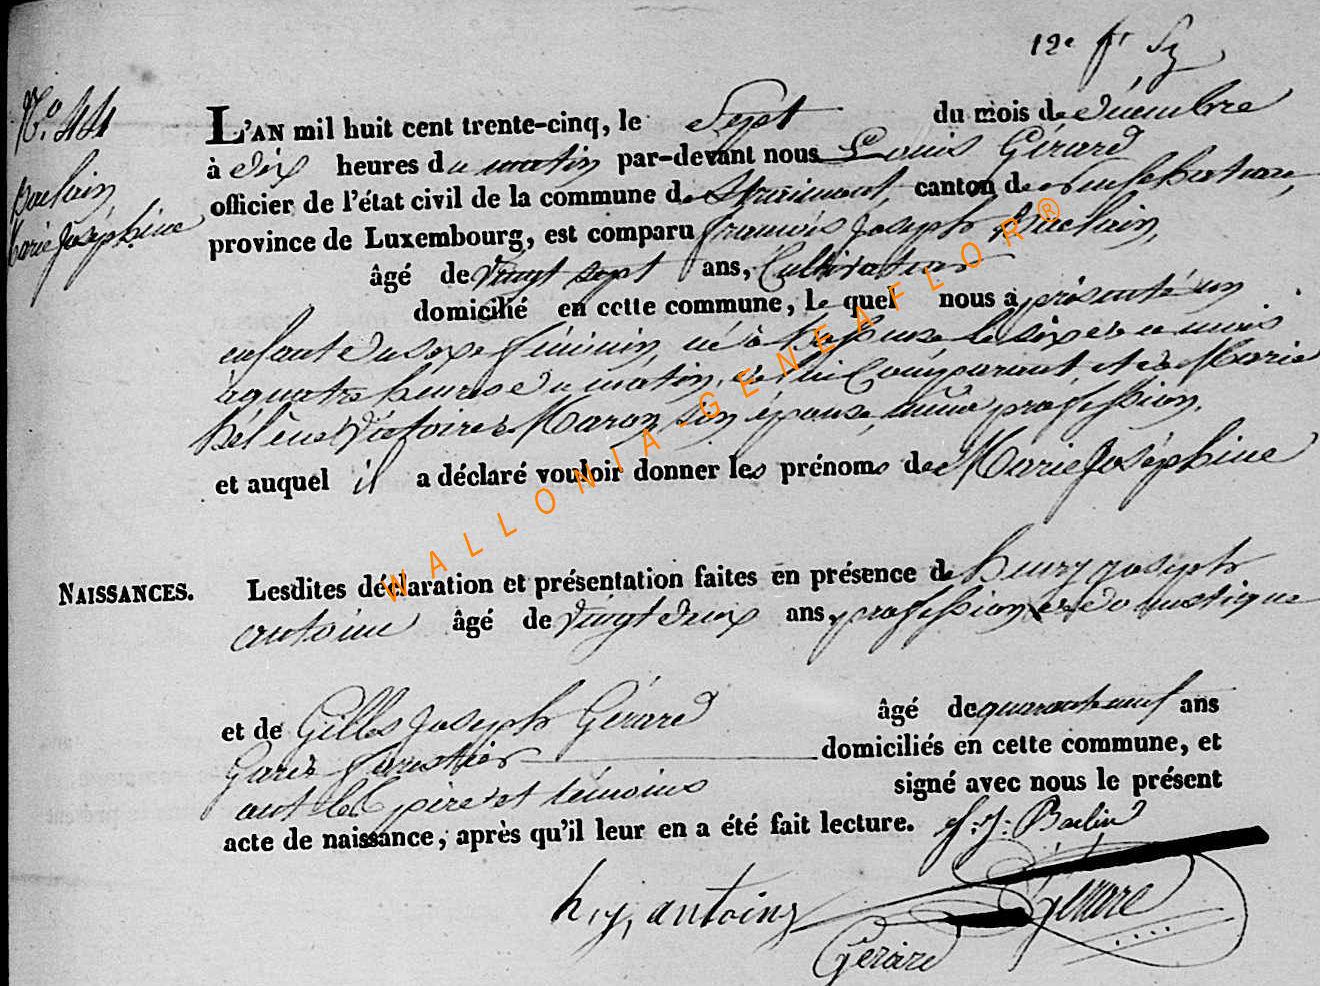 12e fr Sz
N.° 44
Baclain,
Marie Joséphine
L'AN mil huit cent trente-cinq, le Sept du mois de décembre
à dix heures du matin par-devant nous Louis Gérard
officier de l'état civil de la commune de canton de
province de Luxembourg, est comparu françois Joseph Baclain,
âgé de vingt sept ans, Cultivateur
domicilié en cette commune, lequel nous a présenté un
enfant du sexe féminin, né à le six de ce mois
à quatre heures du matin, de lui Comparant et de Marie
hélène Victoire Maron, son épouse, même profession.
et auquel il a déclaré vouloir donner les prénoms de Marie Joséphine
NAISSANCES.
Lesdites déclaration et présentation faites en présence de henry joseph
antoine âgé de vingt deux ans, profession de domestique
et de Gilles Joseph Gérard âgé de quarante neuf ans
Garde forestier domiciliés en cette commune, et
ont les père et témoins signé avec nous le présent
acte de naissance, après qu'il leur en a été fait lecture. f. j. Baclin
h. j. antoine Gérard
Gérard
WALLONIA-GENEAFLOR®